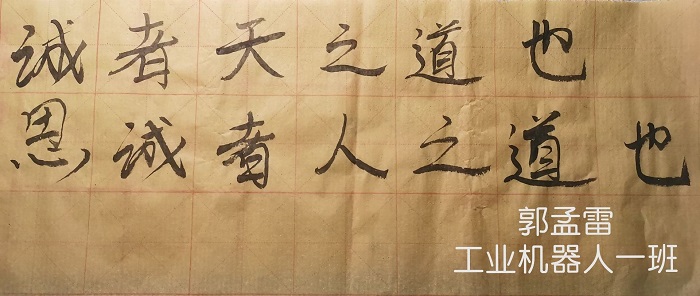 诚者天之道也
思诚者人之道也
郭孟雷
工业机器人一班